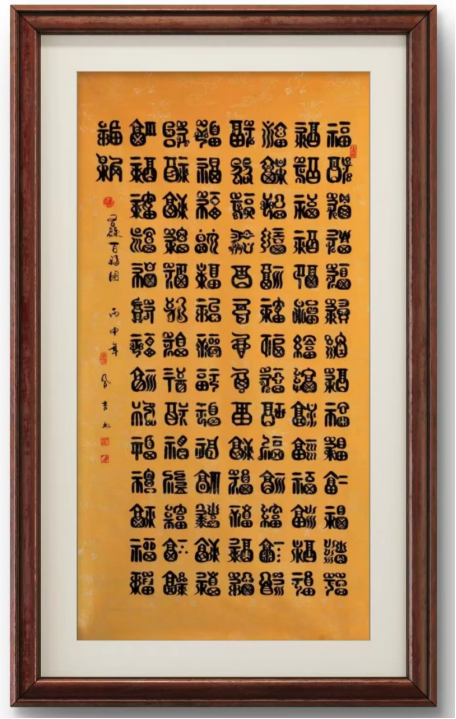 福福福福福福福福福福福福福福
福福福福福福福福福福福福福福
福福福福福福福福福福福福福福
福福福福福福福福福福福福福福
福福福福福福福福福福福福福福
福福福福福福福福福福福福福福
福福福福福福福福福福福福福福
福福 百福图 丙申年